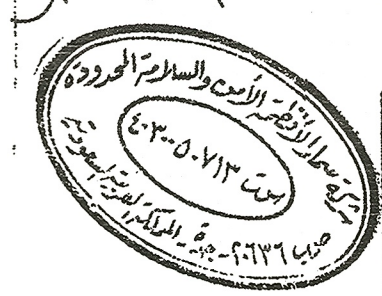 شركة سماء لأنظمة الأمن والسلامة المحدودة
س.ت ٤٠٣٠٠٥٠٧١٣
ص.ب ٢٠٦٣٦ - جدة - المملكة العربية السعودية